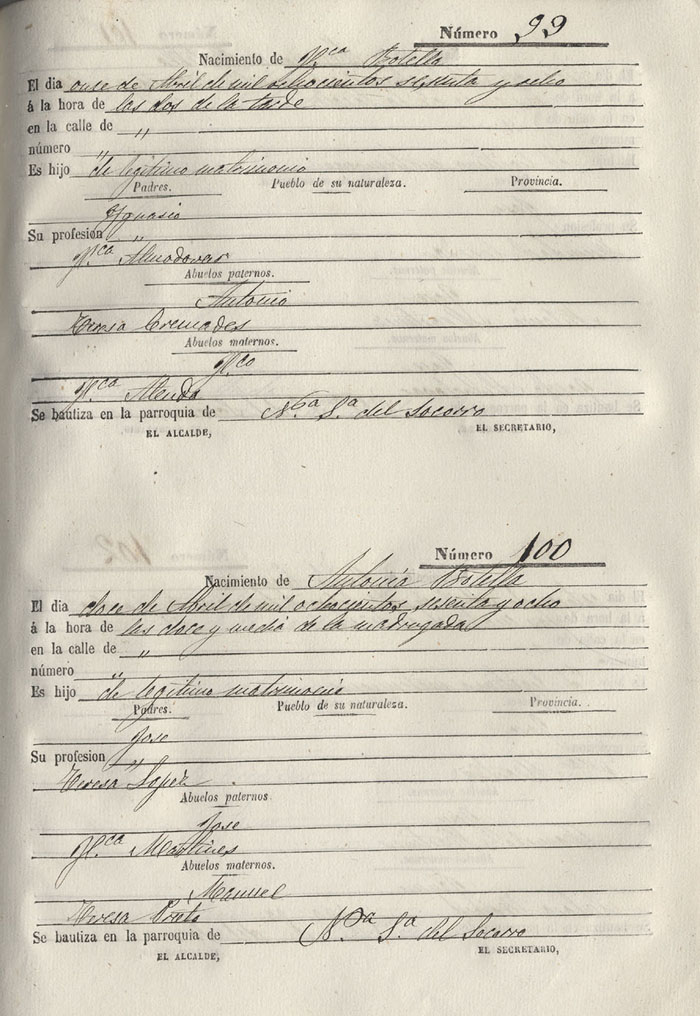 Número 99
Nacimiento de Fca Botella
El dia once de Abril de mil ochocientos sesenta y ocho
á la hora de las dos de la tarde
en la calle de "
número "
Es hijo de legitimo matrimonio
Padres. Pueblo de su naturaleza. Provincia.
Ygnasio
Su profesion "
Fca Almodovar
Abuelos paternos.
Antonio
Teresa Cremades
Abuelos maternos.
Fco
Fca Alenda
Se bautiza en la parroquia de N.a S.a del Socorro
EL ALCALDE, EL SECRETARIO,
Número 100
Nacimiento de Antonia Botella
El dia doce de Abril de mil ochocientos sesenta y ocho
á la hora de las doce y media de la madrugada
en la calle de "
número "
Es hijo de legitimo matrimonio
Padres. Pueblo de su naturaleza. Provincia.
Jose
Su profesion "
Teresa Lopez
Abuelos paternos.
Jose
Fca Martines
Abuelos maternos.
Manuel
Teresa Prieto
Se bautiza en la parroquia de N.a S.a del Socorro
EL ALCALDE, EL SECRETARIO,